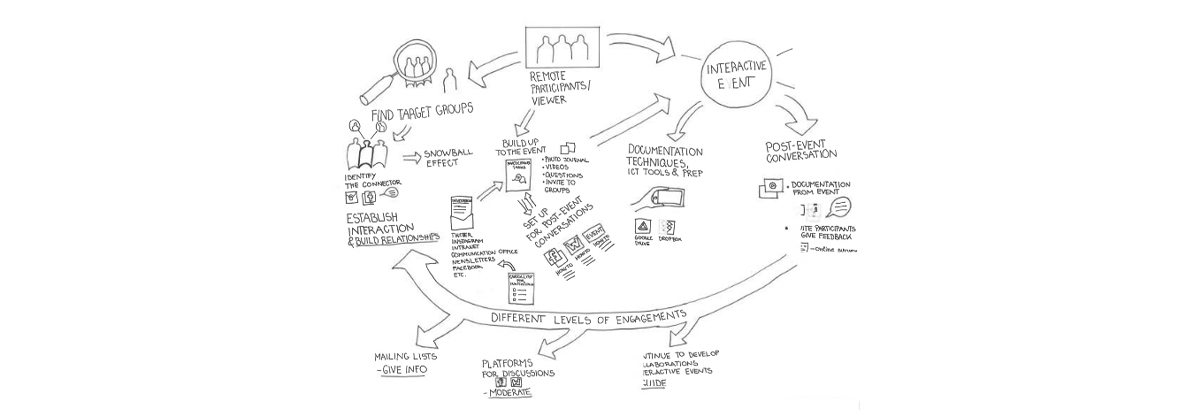 REMOTE
PARTICIPANTS/
VIEWER
INTERACTIVE
E ENT
FIND TARGET GROUPS
SNOWBALL
EFFECT
IDENTIFY
THE CONNECTOR
ESTABLISH
INTERACTION
& BUILD RELATIONSHIPS
BUILD UP
TO THE EVENT
• PHOTO JOURNAL
• VIDEOS
• QUESTIONS
• INVITE TO
GROUPS
TWITTER
INSTAGRAM
INTRANET
COMMUNICATION OFFICE
NEWSLETTERS
FACEBOOK
ETC.
CHECKLIST
SET UP
FOR POST-EVENT
CONVERSATIONS
EVENT
HOW TO
HOW TO
HOW TO
DOCUMENTATION
TECHNIQUES,
ICT TOOLS & PREP
GOOGLE
DRIVE
DROPBOX
POST-EVENT
CONVERSATION
• DOCUMENTATION
FROM EVENT
ITE PARTICIPANTS
GIVE FEEDBACK
- Online survey
DIFFERENT LEVELS OF ENGAGEMENTS
MAILING LISTS
- GIVE INFO
PLATFORMS
FOR DISCUSSIONS
- MODERATE
TINUE TO DEVELOP
LABORATIONS
ERACTIVE EVENTS